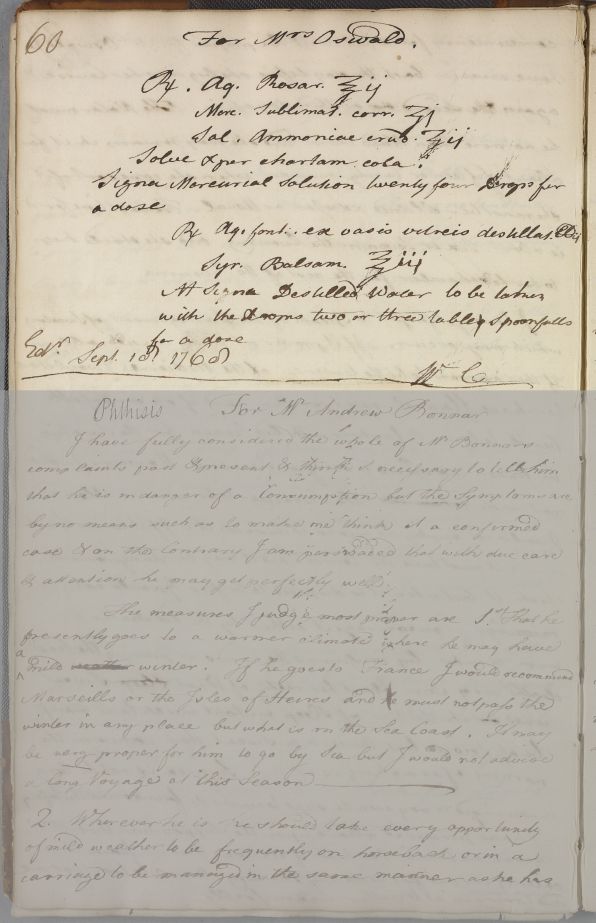 60
For Mrs Oswald.
Rx. Aq. Rosar. ℥ij
Merc. Sublimat. corr. ʒj
Sal. Ammoniac crud. ʒij
Solve & per chartam cola.
Signa Mercurial Solution twenty four Drops for
a dose
Rx Aq. font. ex vasis vitreis destillat.
Syr. Balsam. ℥iij
Signa Destilled Water to be taken
with the Drops two or three table Spoonfulls
for a dose
Edr. Sept. 18 1768
W C
Phthisis For Mr Andrew Bonnar
I have fully considered the whole of Mr Bonnars
complaints past & present & think it necessary to tell him
that he is in danger of a Consumption but the Symptoms are
by no means such as to make me think it a confirmed
case & on the Contrary I am perswaded that with due care
& attention he may get perfectly well.
The measures I judge most proper are 1st That he
presently goes to a warmer climate where he may have
a
mild winter. If he goes to France I would recommend
Marseills or the Isles of Heires and he must not pass the
winter in any place but what is on the Sea Coast. It may
be very proper for him to go by Sea but I would not advise
a long Voyage at this Season
2. Wherever he is he should take every opportunity
of mild weather to be frequently on horseback or in a
carriage to be managed in the same manner as he has